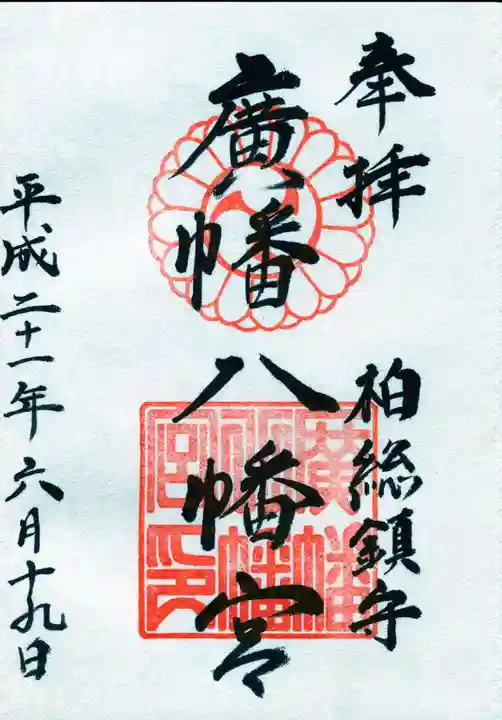 奉拝
柏総鎮守
廣幡八幡宮
廣幡
八幡
宮印
平成二十一年六月十九日